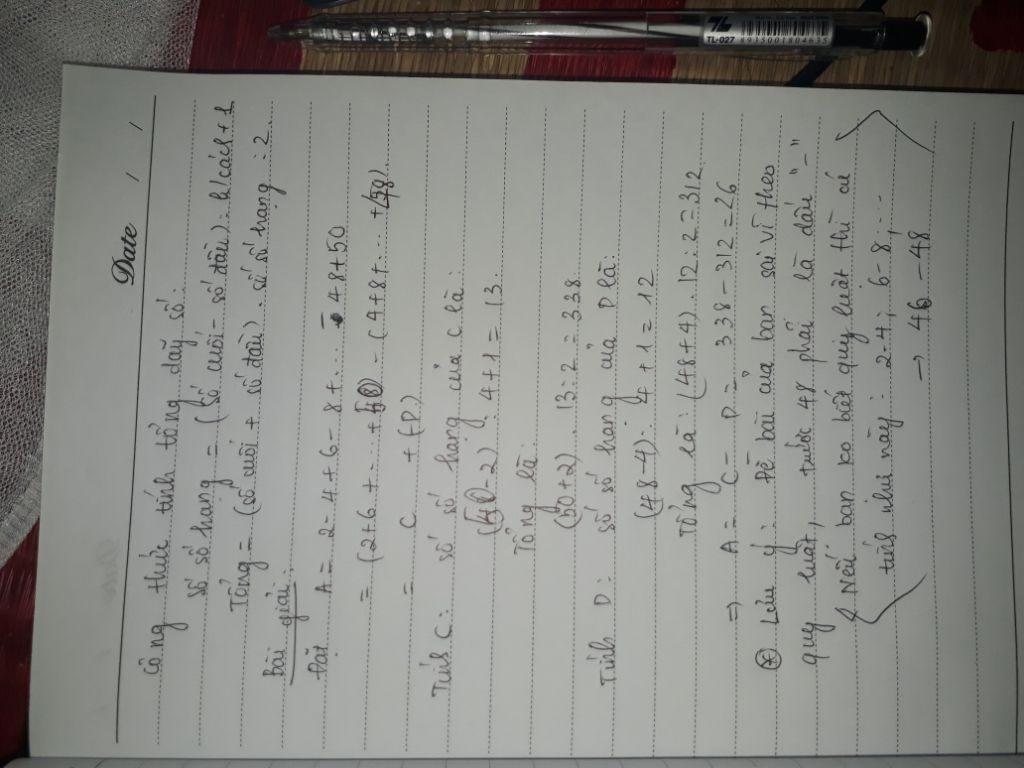 Date / /
Công thức tính tổng dãy số:
Số số hạng = (số cuối - số đầu) : k/cách + 1
Tổng = (số cuối + số đầu) . số số hạng : 2
Bài giải:
Đặt A = 2 - 4 + 6 - 8 + ... - 48 + 50
= (2 + 6 + ... + 50) - (4 + 8 + ... + 48)
= C + (D)
Tính C: số số hạng của C là:
(50 - 2) : 4 + 1 = 13.
Tổng là:
(50 + 2) . 13 : 2 = 338
Tính D: số số hạng của D là:
(48 - 4) : 4 + 1 = 12
Tổng là: (48 + 4) . 12 : 2 = 312
=> A = C - D = 338 - 312 = 26
* Lưu ý: Đề bài của bạn sai vì theo
quy luật, trước 48 phải là dấu "-"
{ Nếu bạn ko biết quy luật thì cứ
tính như này: 2 - 4; 6 - 8; ...
→ 46 - 48 }
TL-027